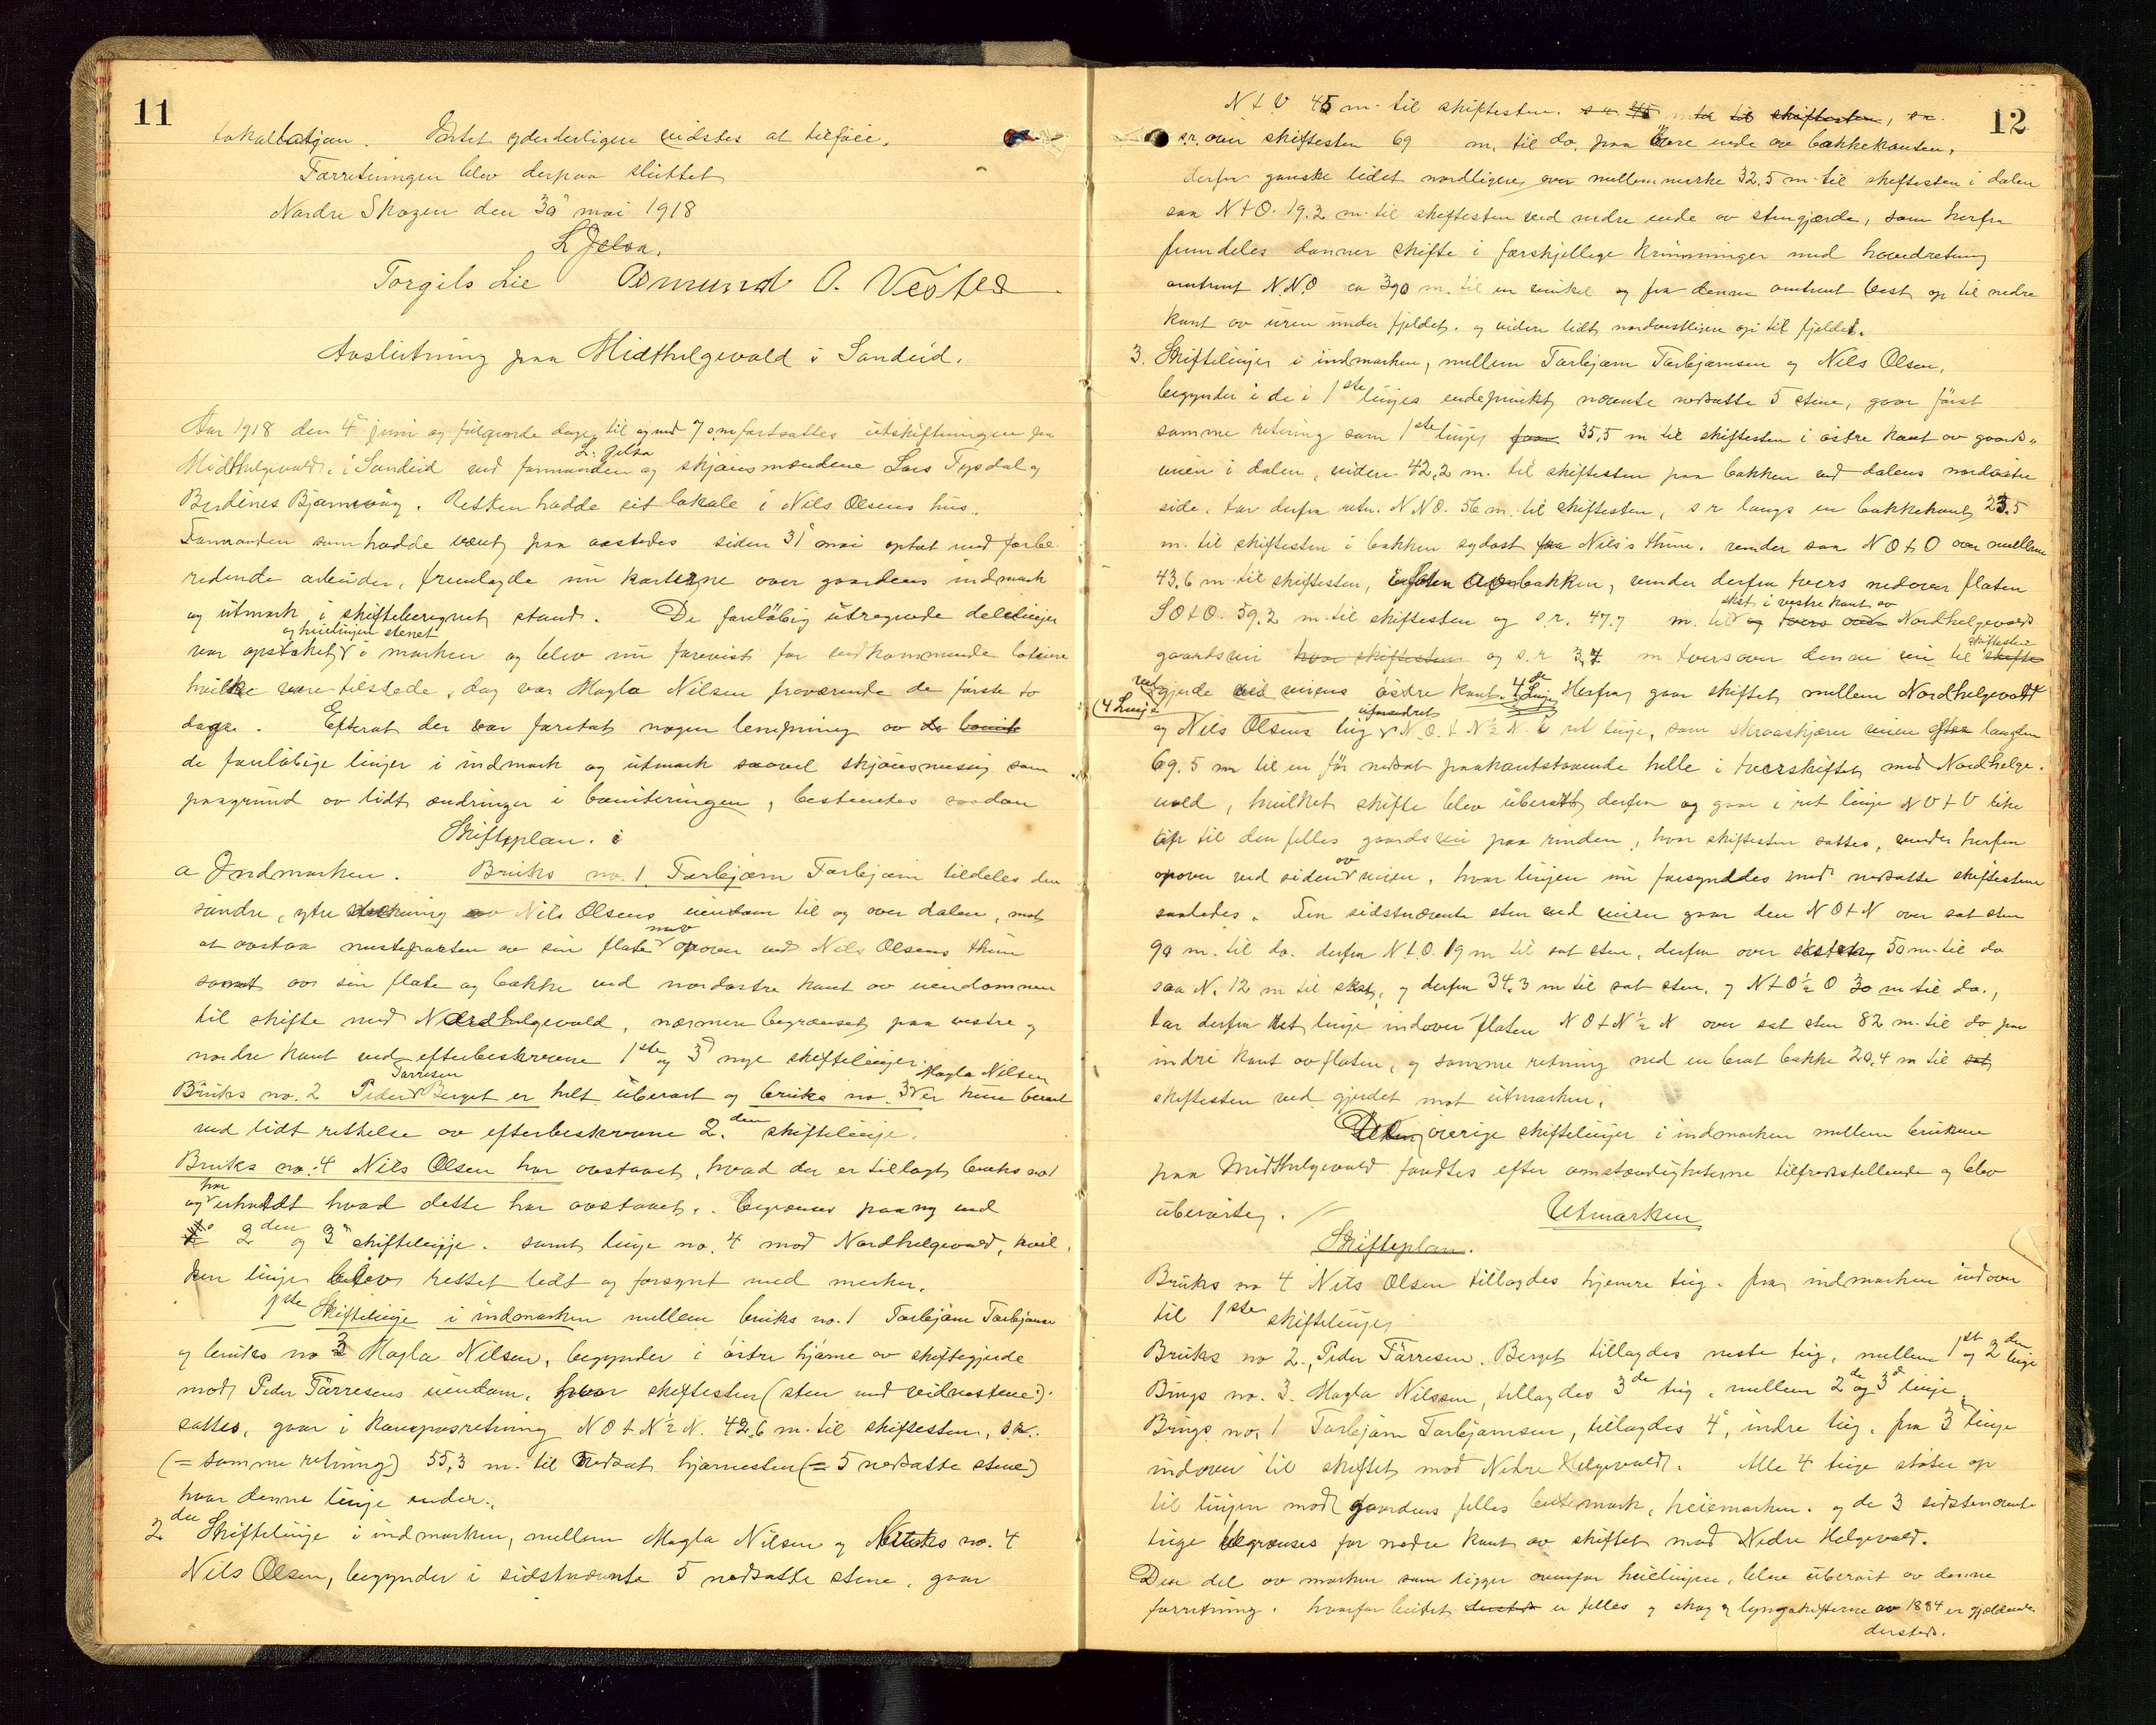 11
lokalbetjen. Intet yderderligere vidstes at tilføie.
Forretningen blev derpaa sluttet
Nordre Skogen den 30 mai 1918
L Jelsa.
Torgils Lie Osmund O. Vestbø
Avslutning paa Midthelgevold i Sandeid.
Aar 1918 den 4 juni og følgende dage, til og med 7 s.m. fortsattes utskiftningen paa
Midthelgevold i Sandeid ved formanden L. Jelsa og skjønsmændene Lars Tysdal og
Berdines Bjørnevåg. Retten hadde sit lokale i Nils Olsens hus.
Formanden som hadde været paa aastedet siden 31 mai optat med forbe-
redende arbeider, fremlagde nu karterne over gaardens indmark
og utmark i skifteberegnet stand. De foreløbig utregnede delelinjer
og heielinjen stenet
var opstukket i marken og blev nu forevist for vedkommende lodeiere
hvilke var tilstede, dog var Magla Nilsen fraværende de første to
dage. Efterat der var foretat nogen lempning av de bonite
de foreløbige linjer i indmark og utmark saavel skjønsmessig som
paagrund av lidt ændringer i boniteringen, bestemtes saadan
Skifteplan.
a Indmarken. Bruks no. 1. Torbjørn Torbjørn tildeles den
søndre, ytre strækning av Nils Olsens eiendom til og over dalen, mot
at avstaa mesteparten av sin flate opover ved Nils Olsens thun
samt av sin flate og bakke ved nordøstre kant av eiendommen
til skifte med Nordhelgevold, nærmere begrænset paa vestre og
nordre kant ved efterbeskrevne 1ste og 3d nye skiftelinjer.
Bruks no. 2 Peder Tørresen Berget er helt uberørt og bruks no. 3 Magla Nilsen er kun berørt
ved lidt rettelse av efterbeskrevne 2.den skiftelinje.
Bruks no. 4 Nils Olsen har avstaaet, hvad der er tillagt bruks no 1
og har erholdt hvad dette har avstaaet. Begrænses paa ny ved
2den og 3d skiftelinje. samt linje no. 4 mod Nordhelgevold, hvil-
ken linje blev rettet lidt og forsynt med merker.
1ste Skiftelinje i indmarken mellem bruks no. 1 Torbjørn Torbjørnsen
og bruks no 3 Magla Nilsen, begynder i østre hjørne av skiftegjerde
mod Peder Tørresens eiendom, hvor skiftesten (sten med vidnestene)
sattes, gaar i kompasretning N O t N ½ N. 42,6 m. til skiftesten, s.r.
(= samme retning) 55,3 m. til nedsat hjørnesten (= 5 nedsatte stene)
hvor denne linje ender.
2den Skiftelinje i indmarken, mellem Magla Nilsen og Bruks no. 4
Nils Olsen, begynder i sidstnævnte 5 nedsatte stene, gaar
12
N t V 45 m. til skiftesten. s.r. 45 m til skiftesten, s.r.
s.r. over skiftesten 69 m. til do. paa øvre ende av bakkekanten,
derfra ganske lidet nordligere, over mellemmerke 32,5 m til skiftesten i dalen
saa N t O. 19.2 m. til skiftesten ved nedre ende av stengjerde, som herfra
fremdeles danner skifte i forskjellige krumninger med hovedretning
omtrent N.N.O ca 390 m. til en vinkel og fra denne omtrent vest op til nedre
kant av uren under fjeldet. og videre lidt nordvestligere op til fjeldet.
3. Skiftelinjer i indmarken, mellem Torbjørn Torbjørnsen og Nils Olsen,
begynder i de i 1ste linjes endepunkt nævnte nedsatte 5 stene, gaar først
samme retning som 1ste linje 35,5 m til skiftesten i østre kant av gaards-
veien i dalen, videre 42,2 m. til skiftesten paa bakken ved dalens nordøstre
side. tar derfra retn. N N O. 56 m. til skiftesten, s r langs en bakkekant 23.5
m. til skiftesten i bakken sydøst for Nils's thun. vender saa N O t O over mellem
43.6 m til skiftesten, paa bakken, vender derfra tvers nedover flaten
S O t O. 59.2 m. til skiftesten og s.r. 47.7 m. til skst i vestre kant av og tvers over Nordhelgevold
gaardsvei hvor skiftesten og s.r 3,7 m tversover denne vei til skiftesten
ved gjerde ved veiens østre kant. 4de Linje Herfra gaar skiftet mellem Nordhelgevold
(4 Linje
og Nils Olsens teig uforandret N.O. t N ½ N. i ret linje, som skraaskjærer veien langden
69.5 m til en før nedsat paakantstaaende helle i tverskiftet med Nordhelge-
vold, hvilket skifte blev uberørt derfra og gaar i ret linje N V t V like
op til den felles gaardsvei paa rinden, hvor skiftesten sattes, vender herfra
opover ved siden av veien, hvor linjen nu forsynedes med nedsatte skiftestene
saaledes. Fra sidstnævnte sten ved veien gaar den N O t N over sat sten
90 m. til do. derfra N t O. 19 m til sat sten, derfra over skst 50 m. til do
saa N. 12 m til skst, og derfra 34.3 m til sat sten, og N t O ½ O 30 m til do.,
tar derfra ret linje indover flaten N O t N ½ N over sat sten 82 m. til do paa
indre kant av flaten, og samme retning ned en brat bakke 20.4 m til sat
skiftesten ved gjerdet mot utmarken.
De øvrige skiftelinjer i indmarken mellem brukene
paa Midthelgevold fandtes efter omstændigheterne tilfredsstillende og blev
uberørte.
Utmarken
Skifteplan.
Bruks no 4 Nils Olsen tillagdes hjemre teig. fra indmarken indover
til 1ste skiftelinje
Bruks no 2., Peder Tørresen. Berget tillagdes neste teig, mellem 1ste og 2den linje
Brugs no. 3. Magla Nilssen, tillagdes 3de teig, mellem 2de og 3d linje.
Brugs no. 1 Torbjørn Torbjørnsen, tillagdes 4, indre teig. fra 3d linje
indover til skiftet mod Nedre Helgevold. Alle 4 teige støter op
til linjen mod gaardens felles beitemark, heiemarken. og de 3 sidstenævnte
teige begrænses for nedre kant av skiftet mod Nedre Helgevold.
Den del av marken som ligger ovenfor heielinjen, blev uberørt av denne
forretning. hvorfor beitet dersteds er felles og skog og lyngskifterne av 1884 er gjeldende
dersteds.